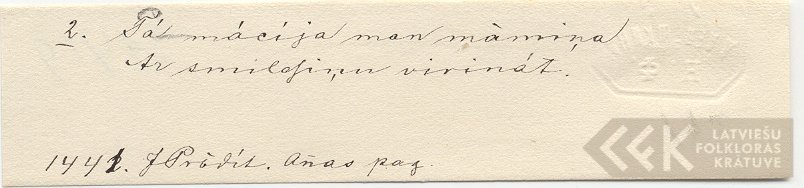 2. Tá mácíja man màmiņa
Ar smildziņu virinát.
1441. J Prōdít. Aņas pag.
LATVIEŠU
FOLKLORAS
KRĀTUVE